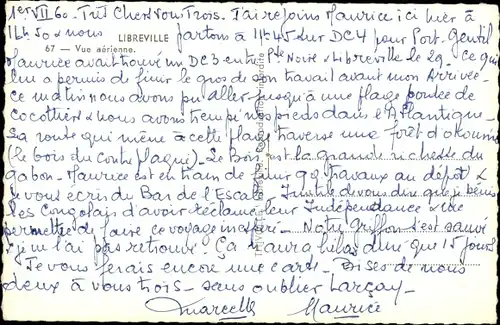 1er VII 60. Très Chers Vous Trois. J'ai rejoins Maurice ici hier à
LIBREVILLE
14h50 & nous partons à 11h45 sur DC4 pour Port-Gentil
67 - Vue aérienne.
Maurice avait trouvé un DC3 entre Pte Noire & Libreville le 29. ce qui
lui a permis de finir le gros de son travail avant mon Arrivée.
ce matin nous avons pu aller jusqu'à une plage bordée de
cocotiers & nous avons trempé nos pieds dans l'Atlantique
sa route qui mène à cette plage traverse une forêt d'okoumé
(le bois du contreplaqué). Le Bois est la grande richesse du
gabon. Maurice est en train de finir qq travaux au dépôt &
je vous écris du Bar de l'Escale. Inutile de vous dire que je bénis
les Congolais d'avoir réclamé leur Indépendance & de
permettre de faire ce voyage inespéré. Notre Griffon s'est sauvé
& je ne l'ai pas retrouvé. Ça n'aura hélas duré que 15 jours
Je vous ferais encore une carte. Bises de nous
deux à vous trois - sans oublier Larçay -
Marcelle Maurice